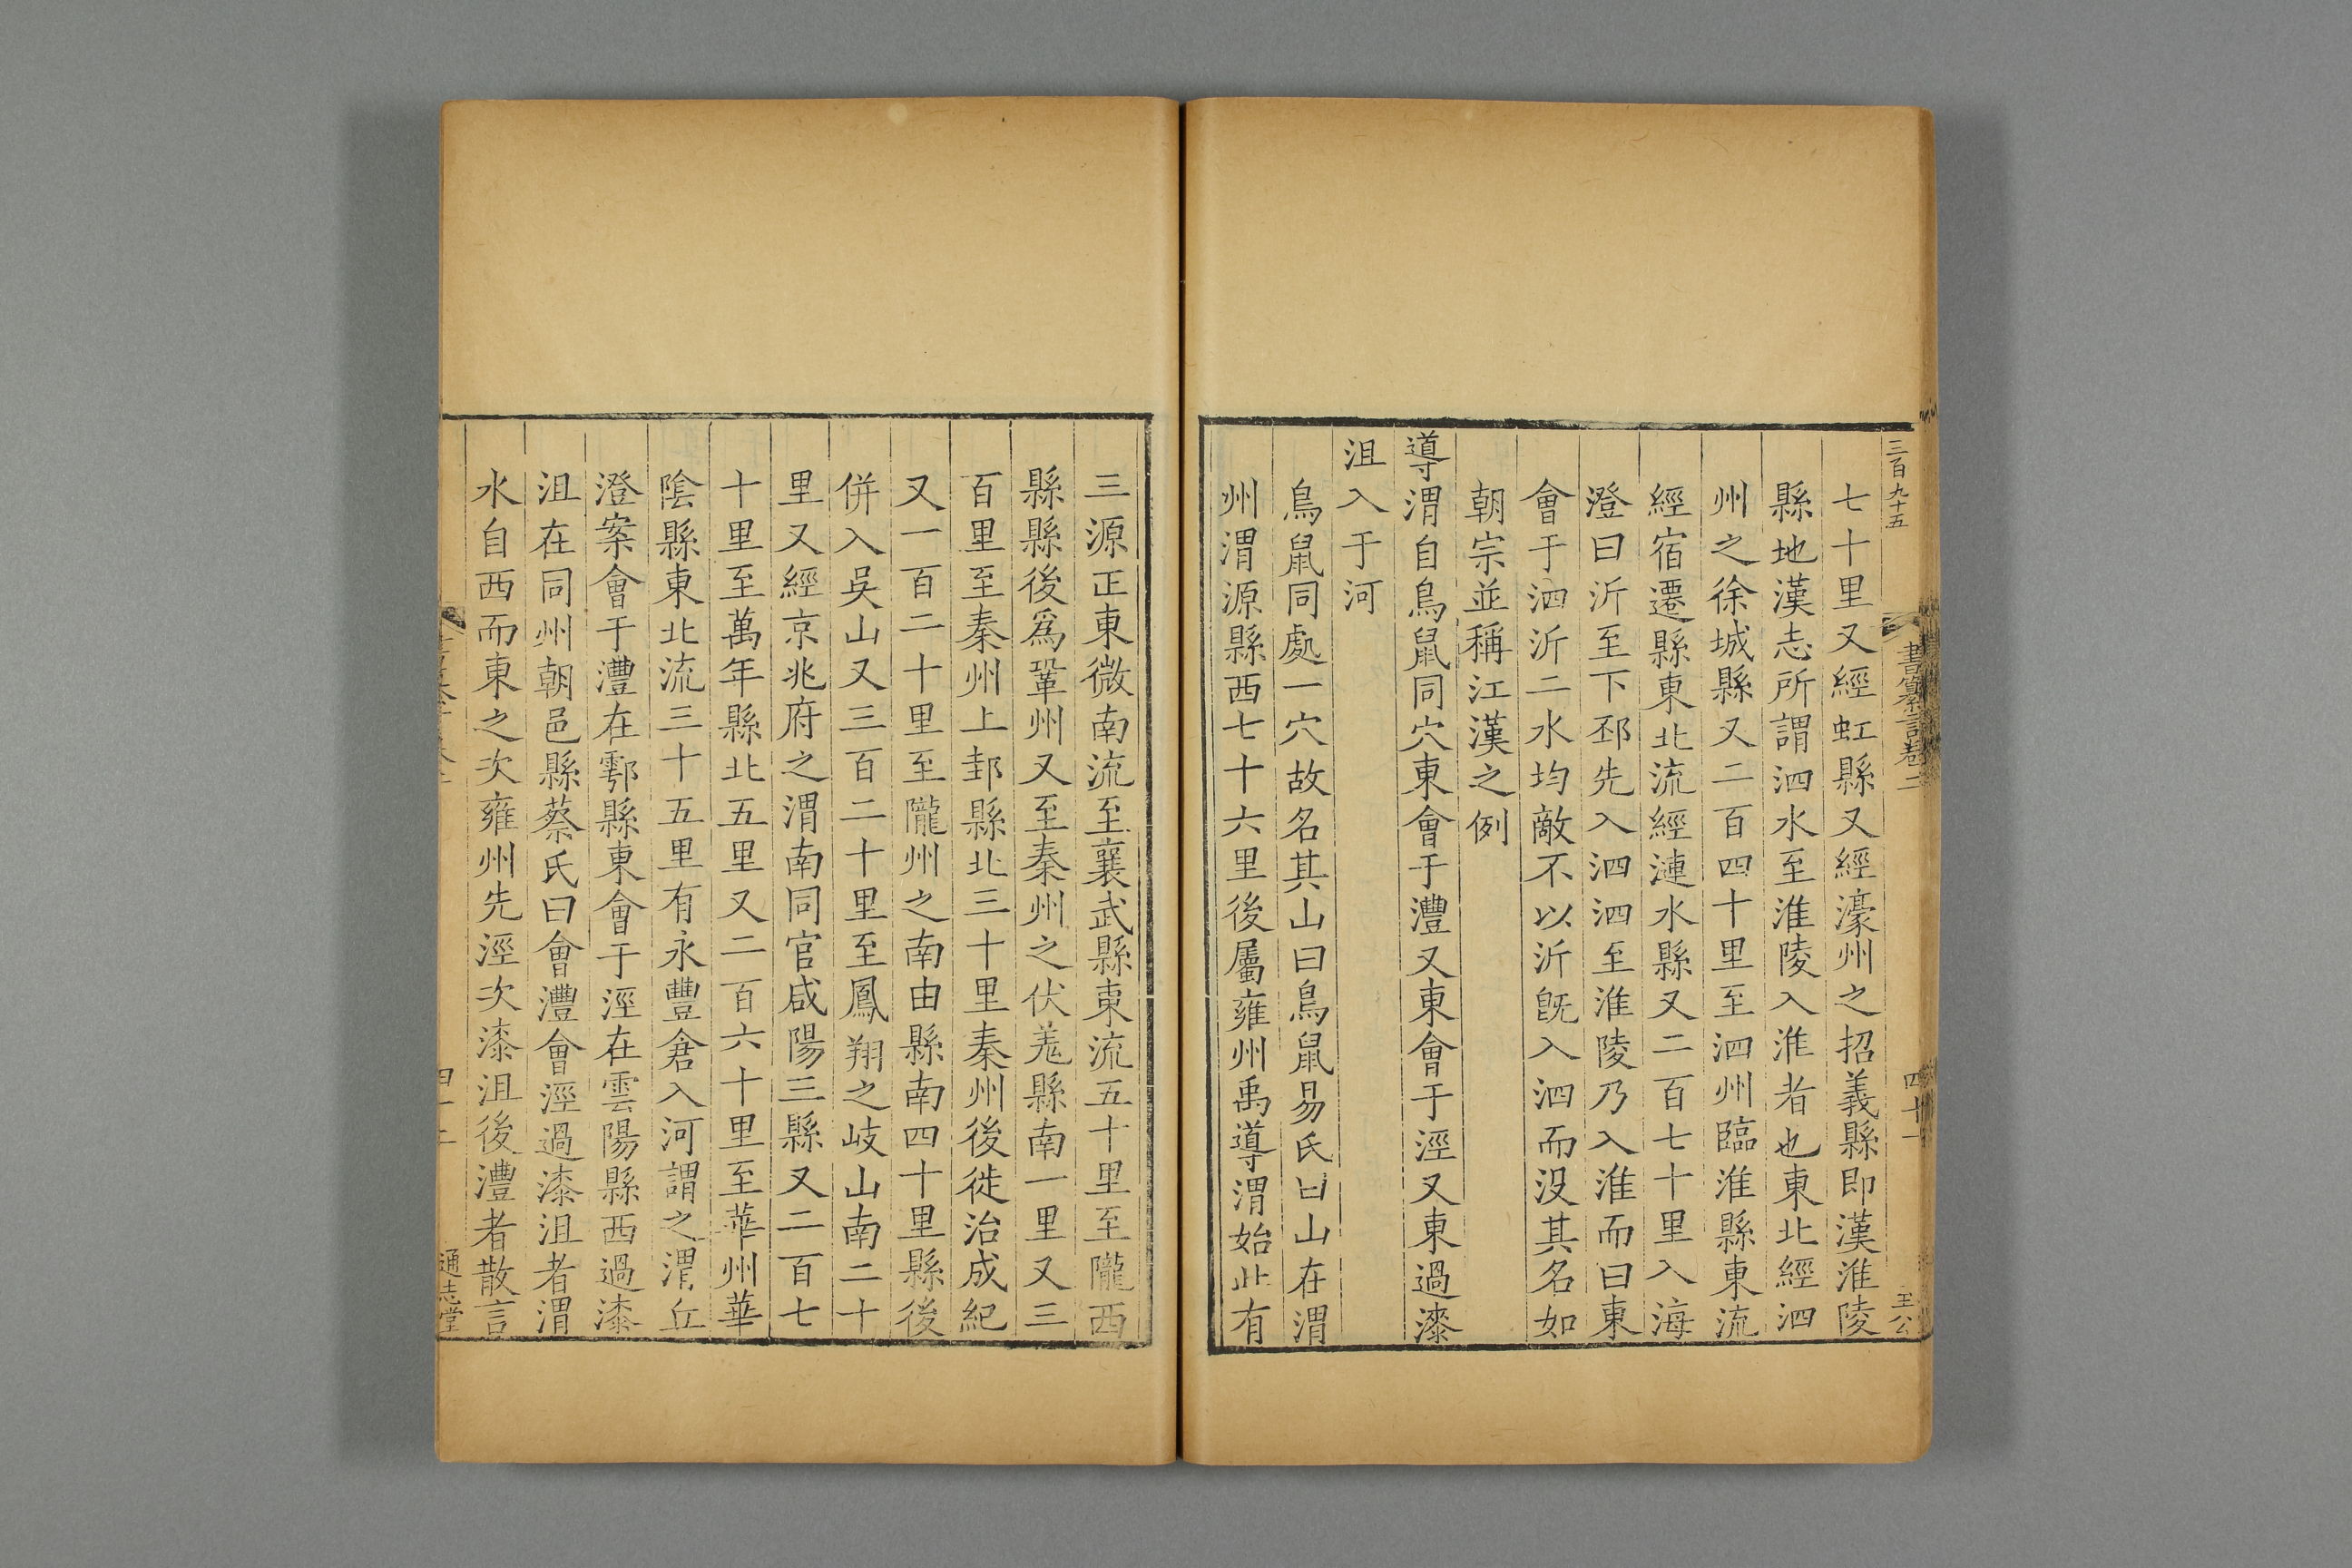 三百九十五
書纂言卷二
四十一
王公
七十里又經虹縣又經濠州之招義縣即漢淮陵
縣地漢志所謂泗水至淮陵入淮者也東北經泗
州之徐城縣又二百四十里至泗州臨淮縣東流
經宿遷縣東北流經漣水縣又二百七十里入海
澄曰沂至下邳先入泗泗至淮陵乃入淮而曰東
會于泗沂二水均敵不以沂旣入泗而没其名如
朝宗並稱江漢之例
導渭自鳥鼠同穴東會于灃又東會于涇又東過漆
沮入于河
鳥鼠同處一穴故名其山曰鳥鼠易氏曰山在渭
州渭源縣西七十六里後屬雍州禹導渭始此有
三源正東微南流至襄武縣東流五十里至隴西
縣縣後爲鞏州又至秦州之伏羌縣南一里又三
百里至秦州上邽縣北三十里秦州後徙治成紀
又一百二十里至隴州之南由縣南四十里縣後
併入吳山又三百二十里至鳳翔之岐山南二十
里又經京兆府之渭南同官咸陽三縣又二百七
十里至萬年縣北五里又二百六十里至華州華
陰縣東北流三十五里有永豐倉入河謂之渭丘
澄案會于灃在鄠縣東會于涇在雲陽縣西過漆
沮在同州朝邑縣蔡氏曰會灃會涇過漆沮者渭
水自西而東之次雍州先涇次漆沮後灃者散言
通志堂